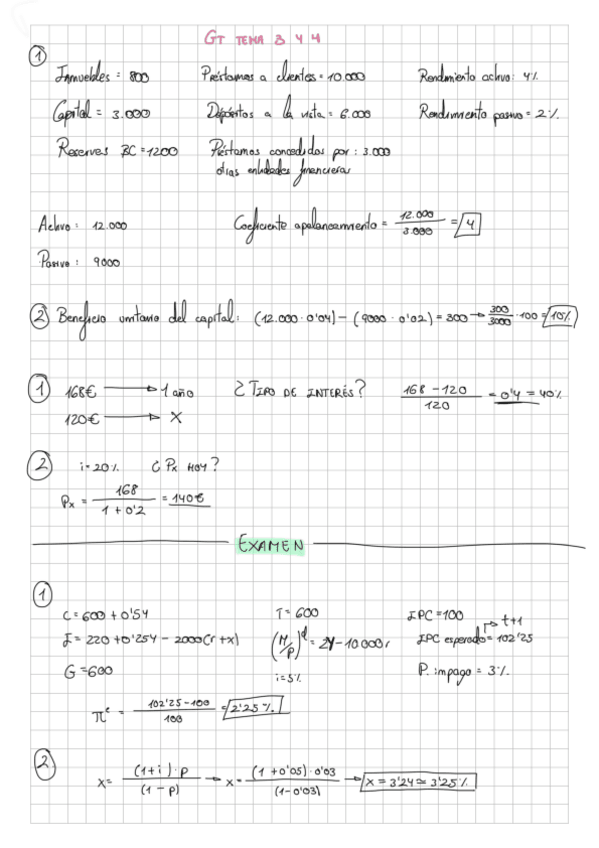 GT TEMA 3 Y 4
①
Inmuebles = 800 Préstamos a clientes = 10.000 Rendimiento activo: 4%
Capital = 3.000 Depósitos a la vista = 6.000 Rendimiento pasivo = 2%
Reservas BC = 1200 Préstamos concedidos por : 3.000
otras entidades financieras
Activo : 12.000 Coeficiente apalancamiento = 12.000 / 3.000 = 4
Pasivo : 9000
② Beneficio unitario del capital: (12.000 · 0'04) - (9000 · 0'02) = 300 → 300/3000 · 100 = 10%
① 168€ → 1 año ¿ TIPO DE INTERÉS ? 168 - 120 / 120 = 0'4 = 40%
120€ → X
② i = 20% ¿ Px HOY ?
Px = 168 / 1 + 0'2 = 140€
EXAMEN
①
C = 600 + 0'5Y T = 600 IPC = 100
I = 220 + 0'25Y - 2000(r + x) (M/P)^d = 2Y - 10.000r IPC esperado = 102'25 → t+1
G = 600 i = 5% P. impago = 3%
π^e = 102'25 - 100 / 100 = 2'25%
②
x = (1+i) · p / (1 - p) → x = (1 + 0'05) · 0'03 / (1 - 0'03) → x = 3'24 ≃ 3'25%